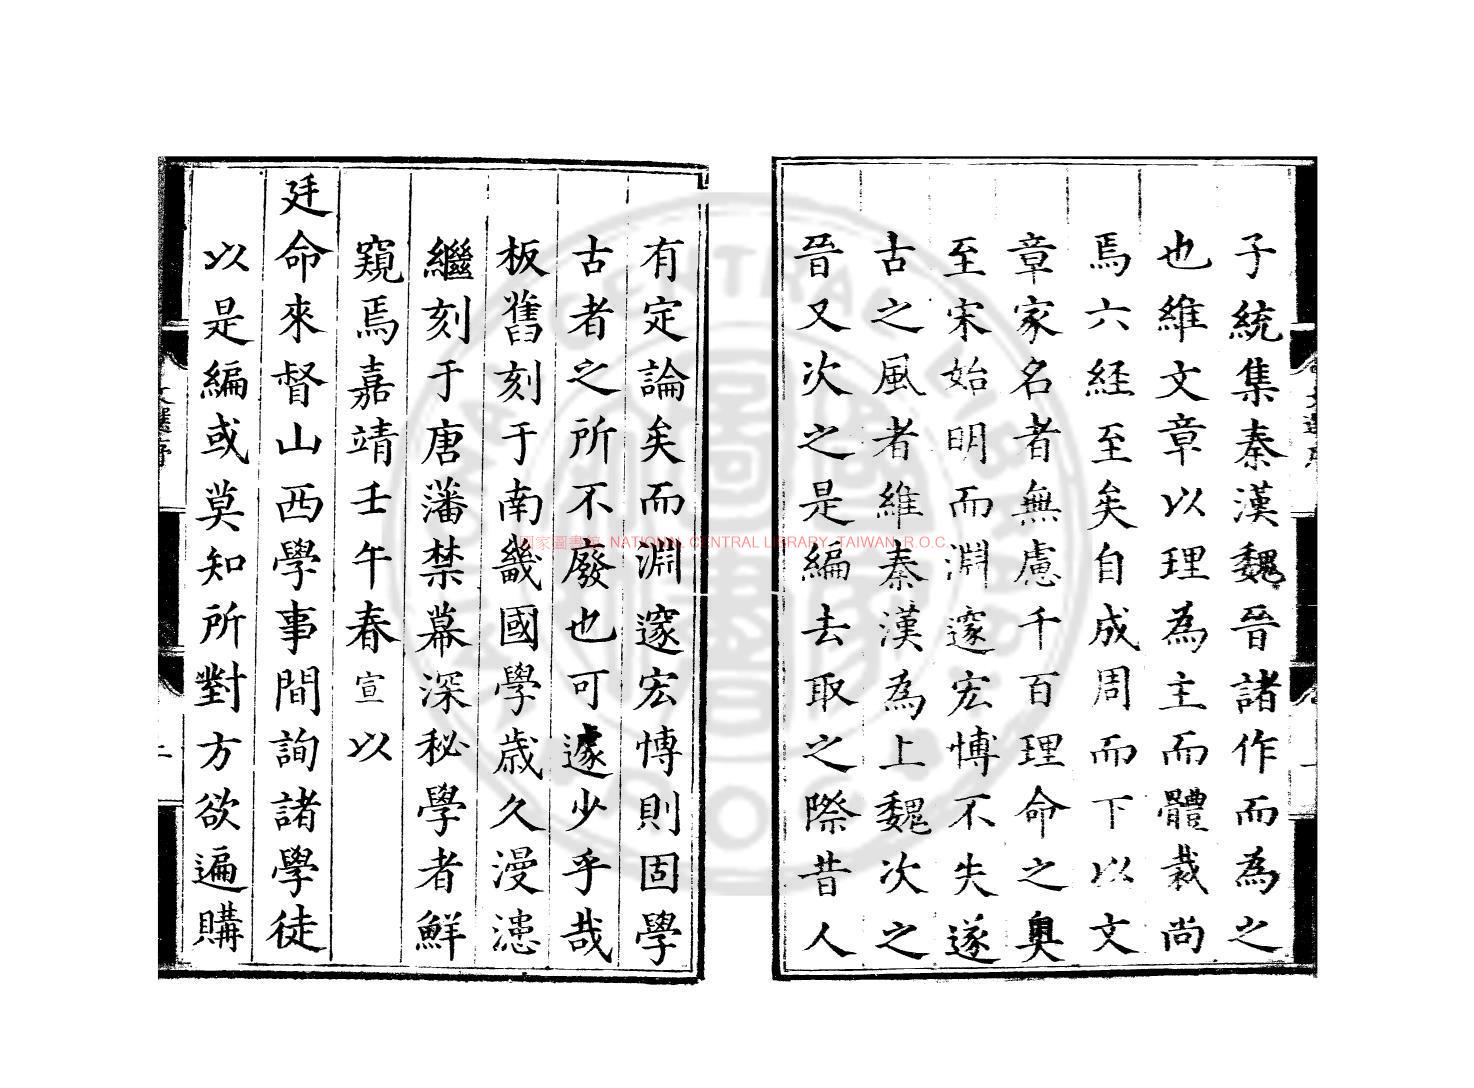 子統集秦漢魏晉諸作而為之
也維文章以理為主而體裁尚
焉六經至矣自成周而下以文
章家名者無慮千百理命之奧
至宋始明而淵邃宏博不失遂
古之風者維秦漢為上魏次之
晉又次之是編去取之際昔人
有定論矣而淵邃宏博則固學
古者之所不廢也可遽少乎哉
板舊刻于南畿國學歲久漫漶
繼刻于唐藩禁幕深秘學者鮮
窺焉嘉靖壬午春宣以
廷命來督山西學事間詢諸學徒
以是編或莫知所對方欲遍購
國家圖書館 NATIONAL CENTRAL LIBRARY, TAIWAN, R.O.C.